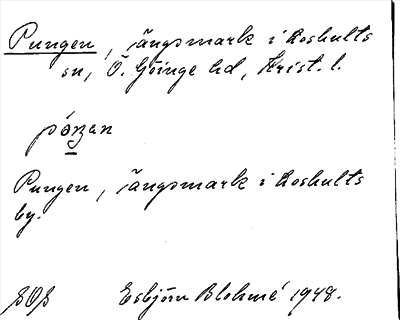 Pungen, ängsmark i Loshults
sn, Ö. Göinge hd, Krist. l.
póŋan
Pungen, ängsmark i Loshults
by.
SOS Esbjörn Blohmé 1948.